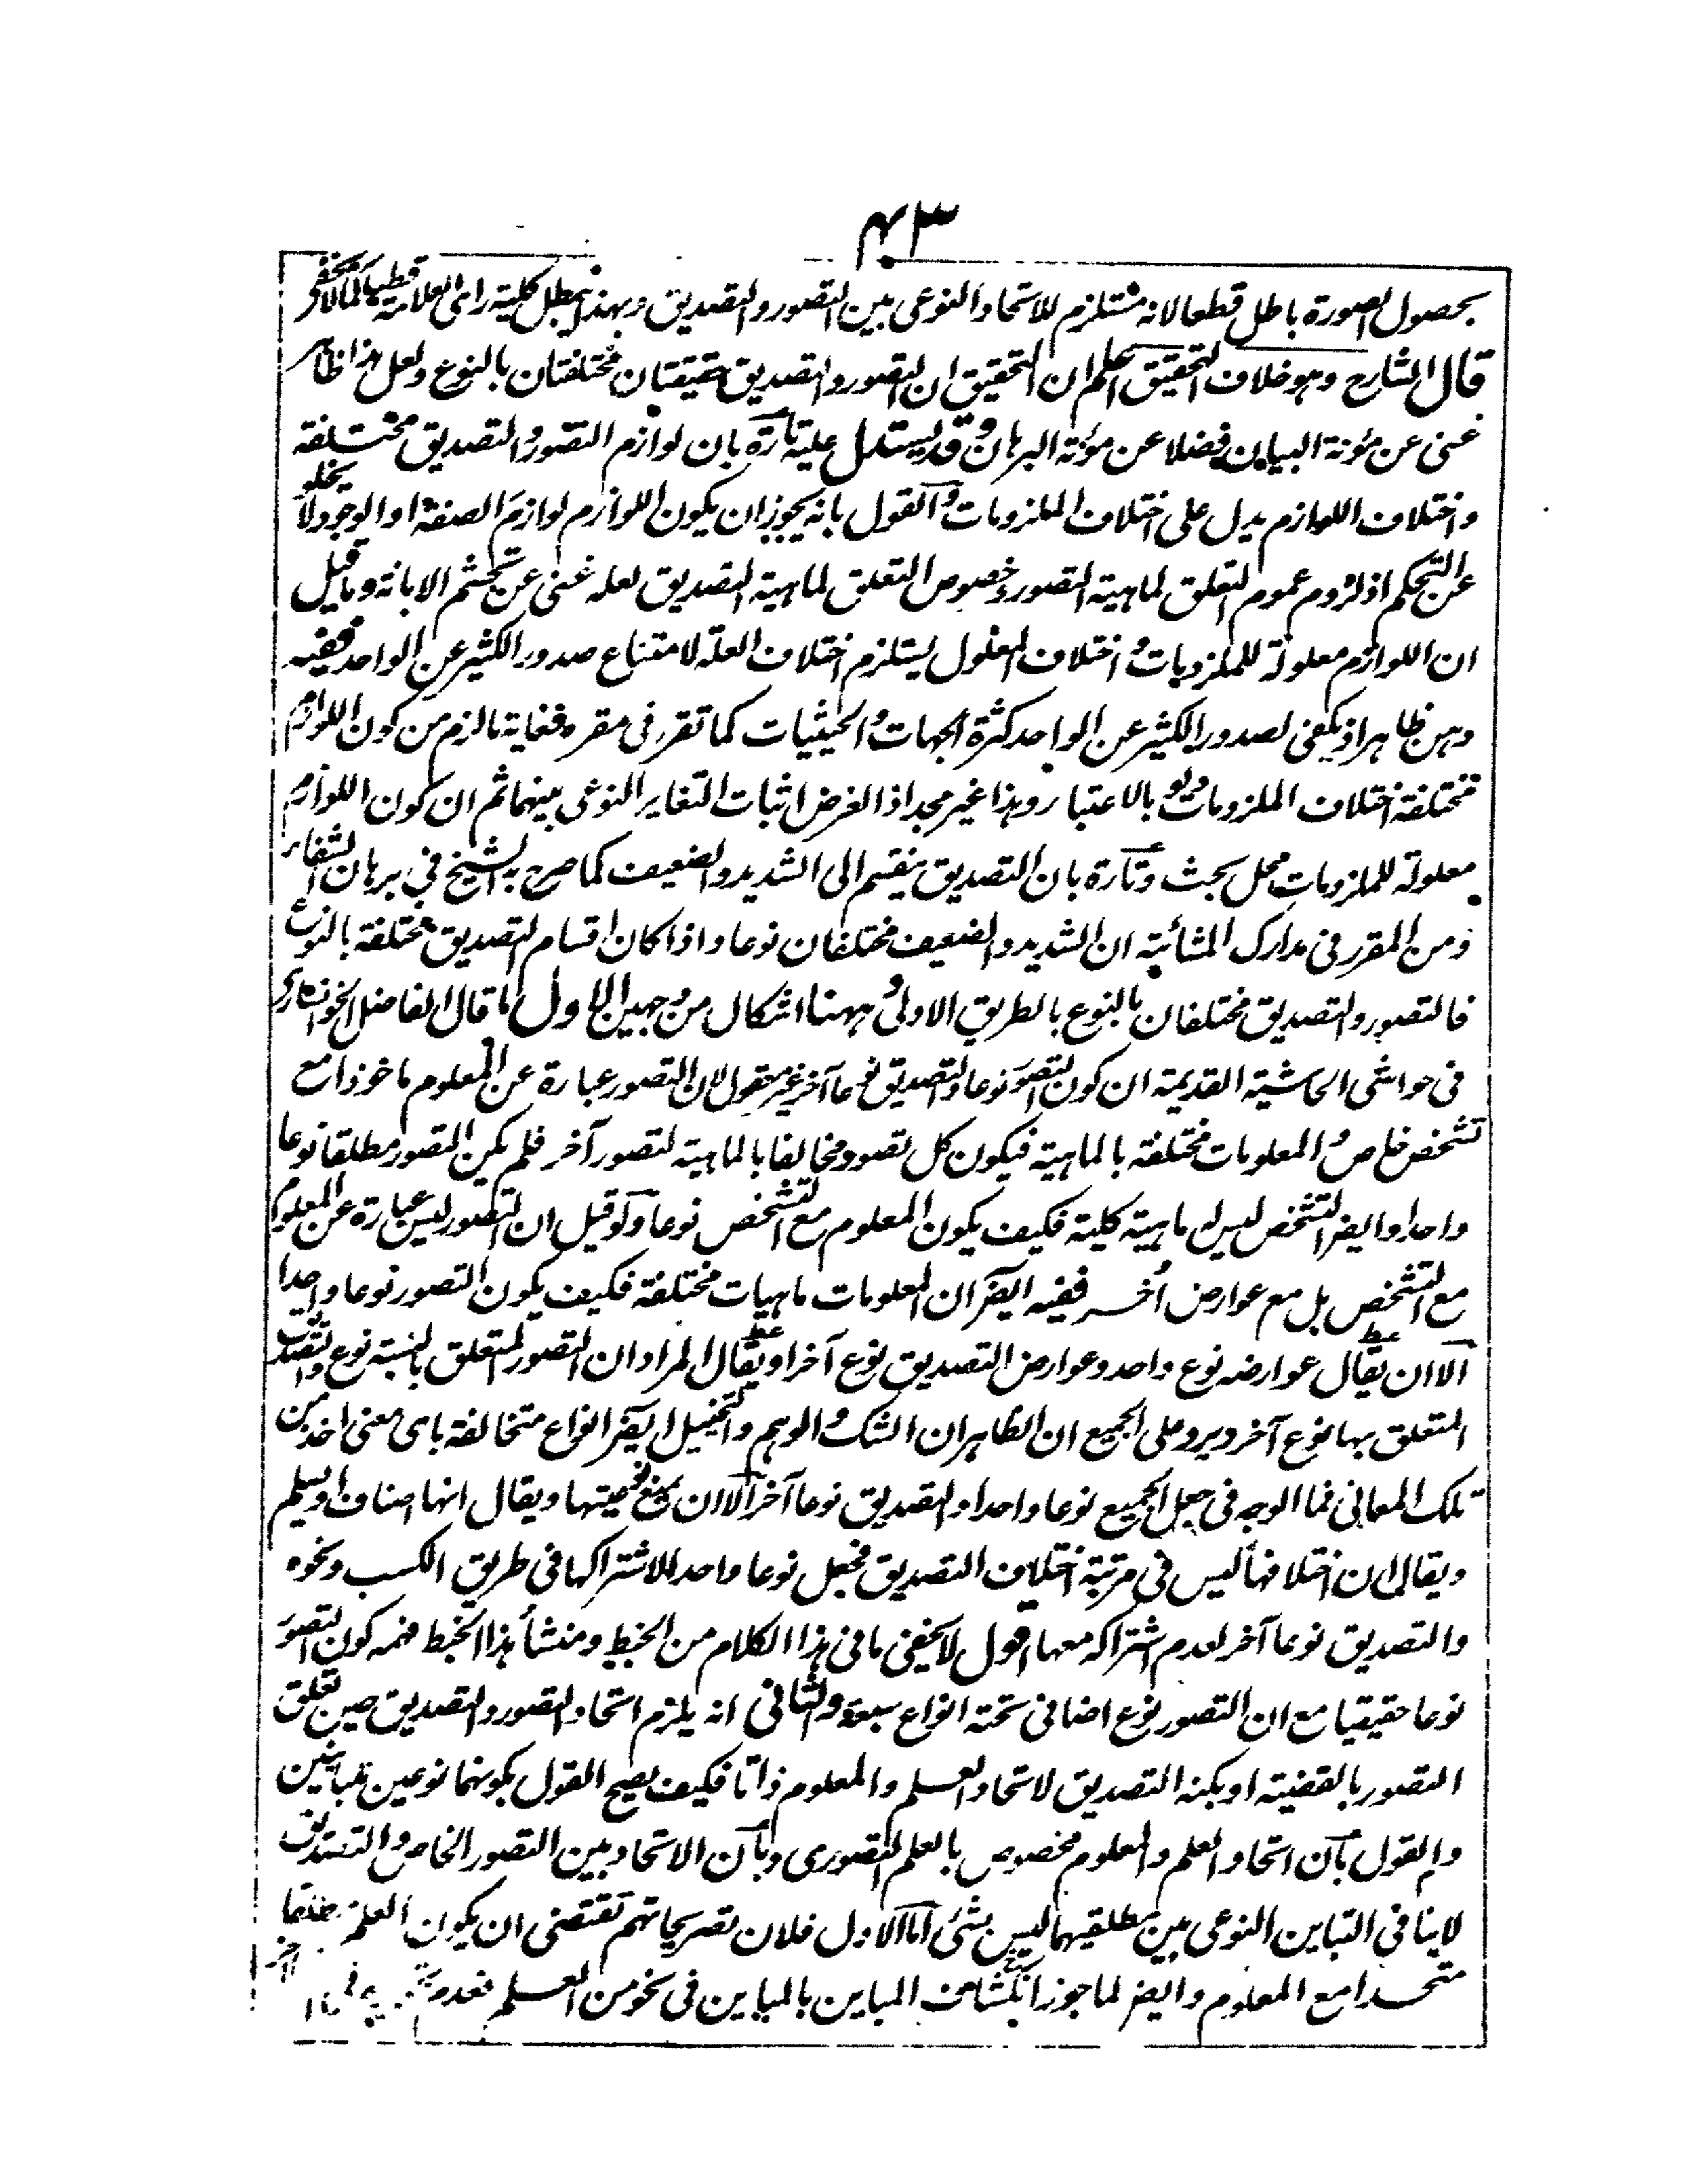 ٣٤
بحصول الصورة باطل قطعا لانه مستلزم للاتحاد النوعى بين التصور والتصديق وبهذا يبطل كلية راى العلامة قطبها كما لا يخفى
قال الشارح وهو خلاف التحقيق اعلم ان التحقيق ان التصور والتصديق حقيقتان مختلفتان بالنوع ولعل هذا ظاهر
غنى عن مؤنة البيان فضلا عن مؤنة البرهان وقد يستدل عليه تارة بان لوازم التصور والتصديق مختلفة
واختلاف اللوازم يدل على اختلاف الملزومات والقول بانه يجوز ان يكون اللوازم لوازم الصنف او الوجود لا يخلو
عن التحكم اذ لزوم عموم التعلق لماهية التصور وخصوص التعلق لماهية التصديق لعله غنى عن تجشم الابانة وما قيل
ان اللوازم معلولة للملزومات واختلاف المعلول يستلزم اختلاف العلة لامتناع صدور الكثير عن الواحد ففيه
وهن ظاهر اذ يكفى لصدور الكثير عن الواحد كثرة الجهات والحيثيات كما تقرر فى مقره فغاية ما لزم من كون اللوازم
مختلفة اختلاف الملزومات ولو بالاعتبار وهذا غير مجد اذ الغرض اثبات التغاير النوعى بينهما ثم ان كون اللوازم
معلولة للملزومات محل بحث وتارة بان التصديق ينقسم الى الشديد والضعيف كما صرح به الشيخ فى برهان الشفاء
ومن المقرر فى مدارك المشائية ان الشديد والضعيف مختلفان نوعا واذا كان اقسام التصديق مختلفة بالنوع
فالتصور والتصديق مختلفان بالنوع بالطريق الاولى وههنا اشكال من وجهين الاول ما قال الفاضل الخوانسارى
فى حواشى الحاشية القديمة ان كون التصور نوعا والتصديق نوعا آخر غير معقول لان التصور عبارة عن المعلوم ماخوذا مع
تشخص خاص والمعلومات مختلفة بالماهية فيكون كل تصور مخالفا بالماهية لتصور آخر فلم يكن التصور مطلقا نوعا
واحدا وايضا التشخص ليس له ماهية كلية فكيف يكون المعلوم مع التشخص نوعا ولو قيل ان التصور ليس عبارة عن المعلوم
مع التشخص بل مع عوارض أخر ففيه ايضا ان المعلومات ماهيات مختلفة فكيف يكون التصور نوعا واحدا
الا ان يقال عوارضه نوع واحد وعوارض التصديق نوع آخر او يقال المراد ان التصور المتعلق بالنسبة نوع والتصديق
المتعلق بها نوع آخر ويرد على الجميع ان الظاهر ان الشك والوهم والتخييل ايضا انواع متخالفة باى معنى اخذ من
تلك المعانى فما الوجه فى جعل الجميع نوعا واحدا والتصديق نوعا آخر الا ان يمنع نوعيتها ويقال انها اصناف او يسلم
ويقال ان اختلافها ليس فى مرتبة اختلاف التصديق فجعل نوعا واحدا لاشتراكها فى طريق الكسب ونحوه
والتصديق نوعا آخر لعدم اشتراكه معها اقول لا يخفى ما فى هذا الكلام من الخبط ومنشأ هذا الخبط فهمه كون التصور
نوعا حقيقيا مع ان التصور نوع اضافى تحته انواع سبعة والثانى انه يلزم اتحاد التصور والتصديق حين تعلق
التصور بالقضية او بكنه التصديق لاتحاد العلم والمعلوم ذاتا فكيف يصح القول بكونهما نوعين متباينين
والقول بان اتحاد العلم والمعلوم مخصوص بالعلم التصورى وبان الاتحاد بين التصور الخاص والتصديق
لا ينافى التباين النوعى بين مطلقيهما ليس بشئ اما الاول فلان تصريحاتهم تقتضى ان يكون العلم مطلقا
متحدا مع المعلوم وايضا لما جوز انكشاف المباين بالمباين فى نحو من العلم